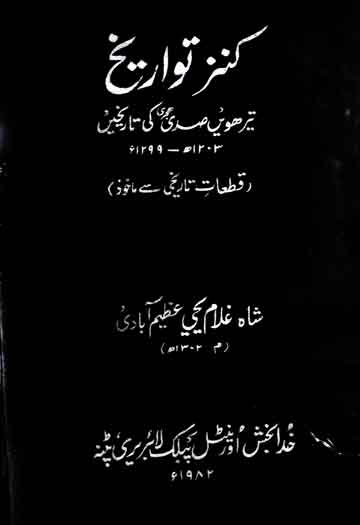 کنز تواریخ
تیرھویں صدی ہجری کی تاریخیں
۱۲۰۳ھ — ۱۲۹۹ء
(قطعات تاریخی سے ماخوذ)
شاہ غلام یحییٰ عظیم آبادی
(م ۱۳۰۲ھ)
خدا بخش اورینٹل پبلک لائبریری، پٹنہ
۱۹۸۲ء